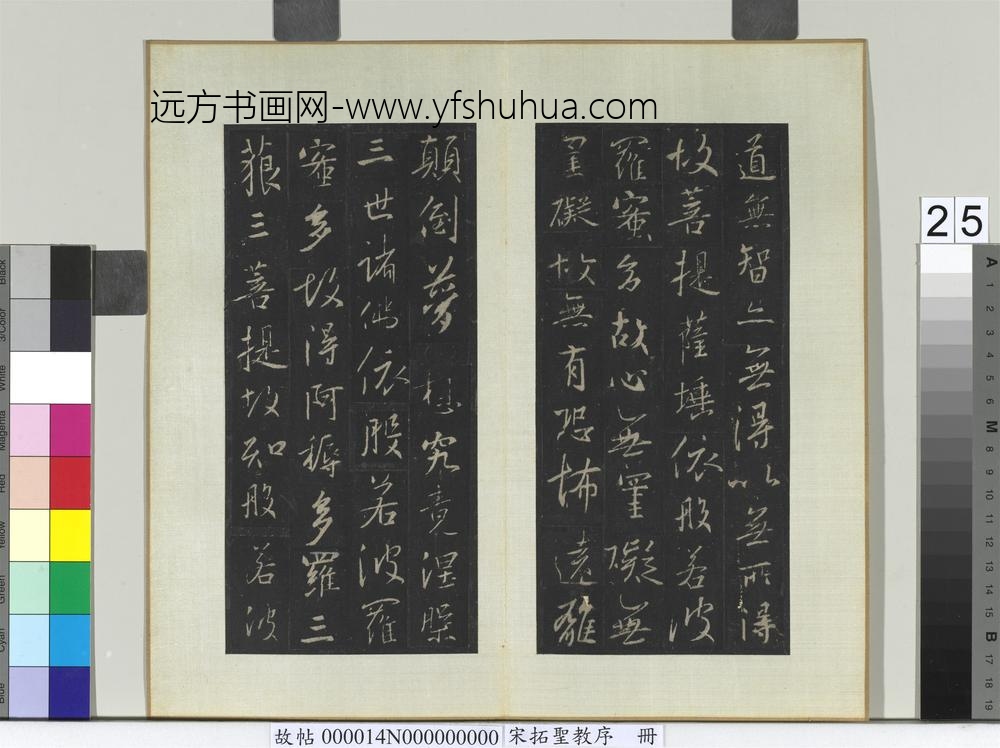 远方书画网-www.yfshuhua.com
道無智亦無得以無所得
故菩提薩埵依般若波
羅蜜多故心無罣礙無
罣礙故無有恐怖遠離
顛倒夢想究竟涅槃
三世諸佛依般若波羅
蜜多故得阿耨多羅三
藐三菩提故知般若波
25
Black
3/Color
White
Magenta
Red
Yellow
Green
Cyan
Blue
A
1
2
3
4
5
6
M
8
9
10
11
12
13
14
15
B
17
18
19
故帖 000014N000000000 宋拓聖教序 冊